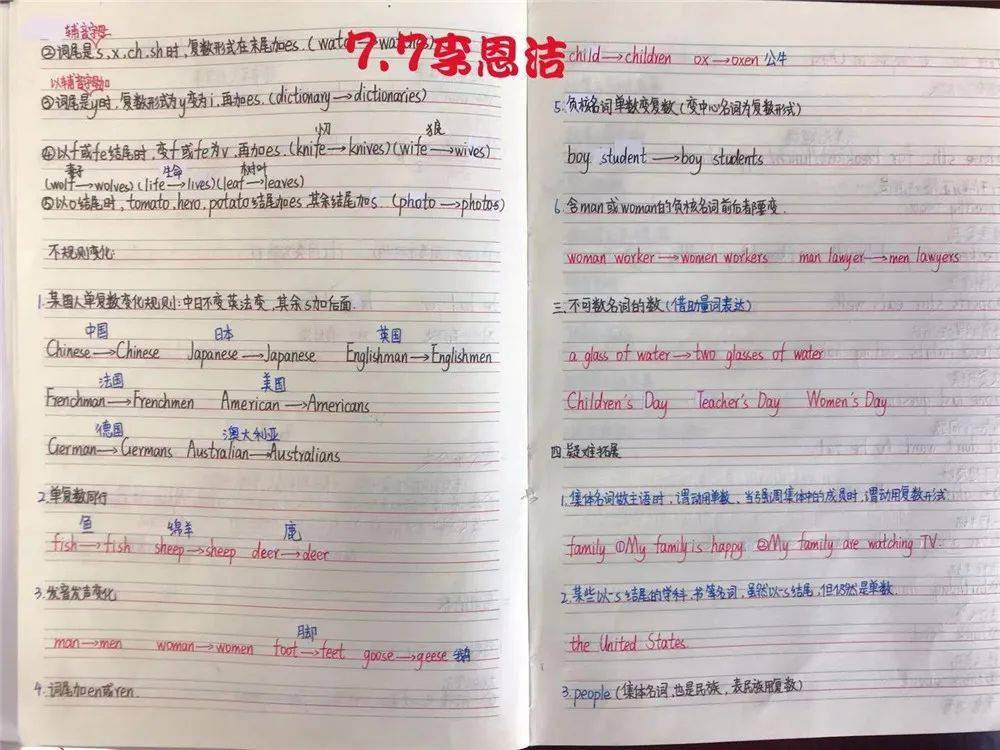 辅音字母
②词尾是s,x,ch,sh时,复数形式在末尾加es.(watch→watches)
7.7李恩洁
以辅音字母加
③词尾是y时,复数形式为y变为i,再加es.(dictionary→dictionaries)
刀 狼
④以f或fe结尾时,变f或fe为v,再加es.(knife→knives)(wife→wives)
妻子 生命 树叶
(wolf→wolves)(life→lives)(leaf→leaves)
⑤以o结尾时,tomato,hero,potato结尾加es 其余结尾加s.(photo→photos)
不规则变化:
1.某国人单复数变化规则:中日不变英法变,其余s加后面.
中国 日本 英国
Chinese→Chinese Japanese→Japanese Englishman→Englishmen
法国 美国
Frenchman→Frenchmen American→Americans
德国 澳大利亚
German→Germans Australian→Australians
2.单复数同行
鱼 绵羊 鹿
fish→fish sheep→sheep deer→deer
3.发音发声变化
脚
man→men woman→women foot→feet goose→geese 鹅
4.词尾加en或ren.
child→children ox→oxen 公牛
5.负核名词单数变复数(变中心名词为复数形式)
boy student→boy students
6.含man或woman的负核名词前后都要变.
woman worker→women workers man lawyer→men lawyers
三.不可数名词的数(借助量词表达)
a glass of water→two glasses of water
Children's Day Teacher's Day Women's Day
四.疑难拓展
1.集体名词做主语时,谓动用单数,当强调集体中的成员时,谓动用复数形式
family ①My family is happy. ②My family are watching TV.
2.某些以-s结尾的学科,书等名词,虽然以-s结尾,但仍然是单数.
the United States.
3.people(集体名词,也是民族,表民族用复数)